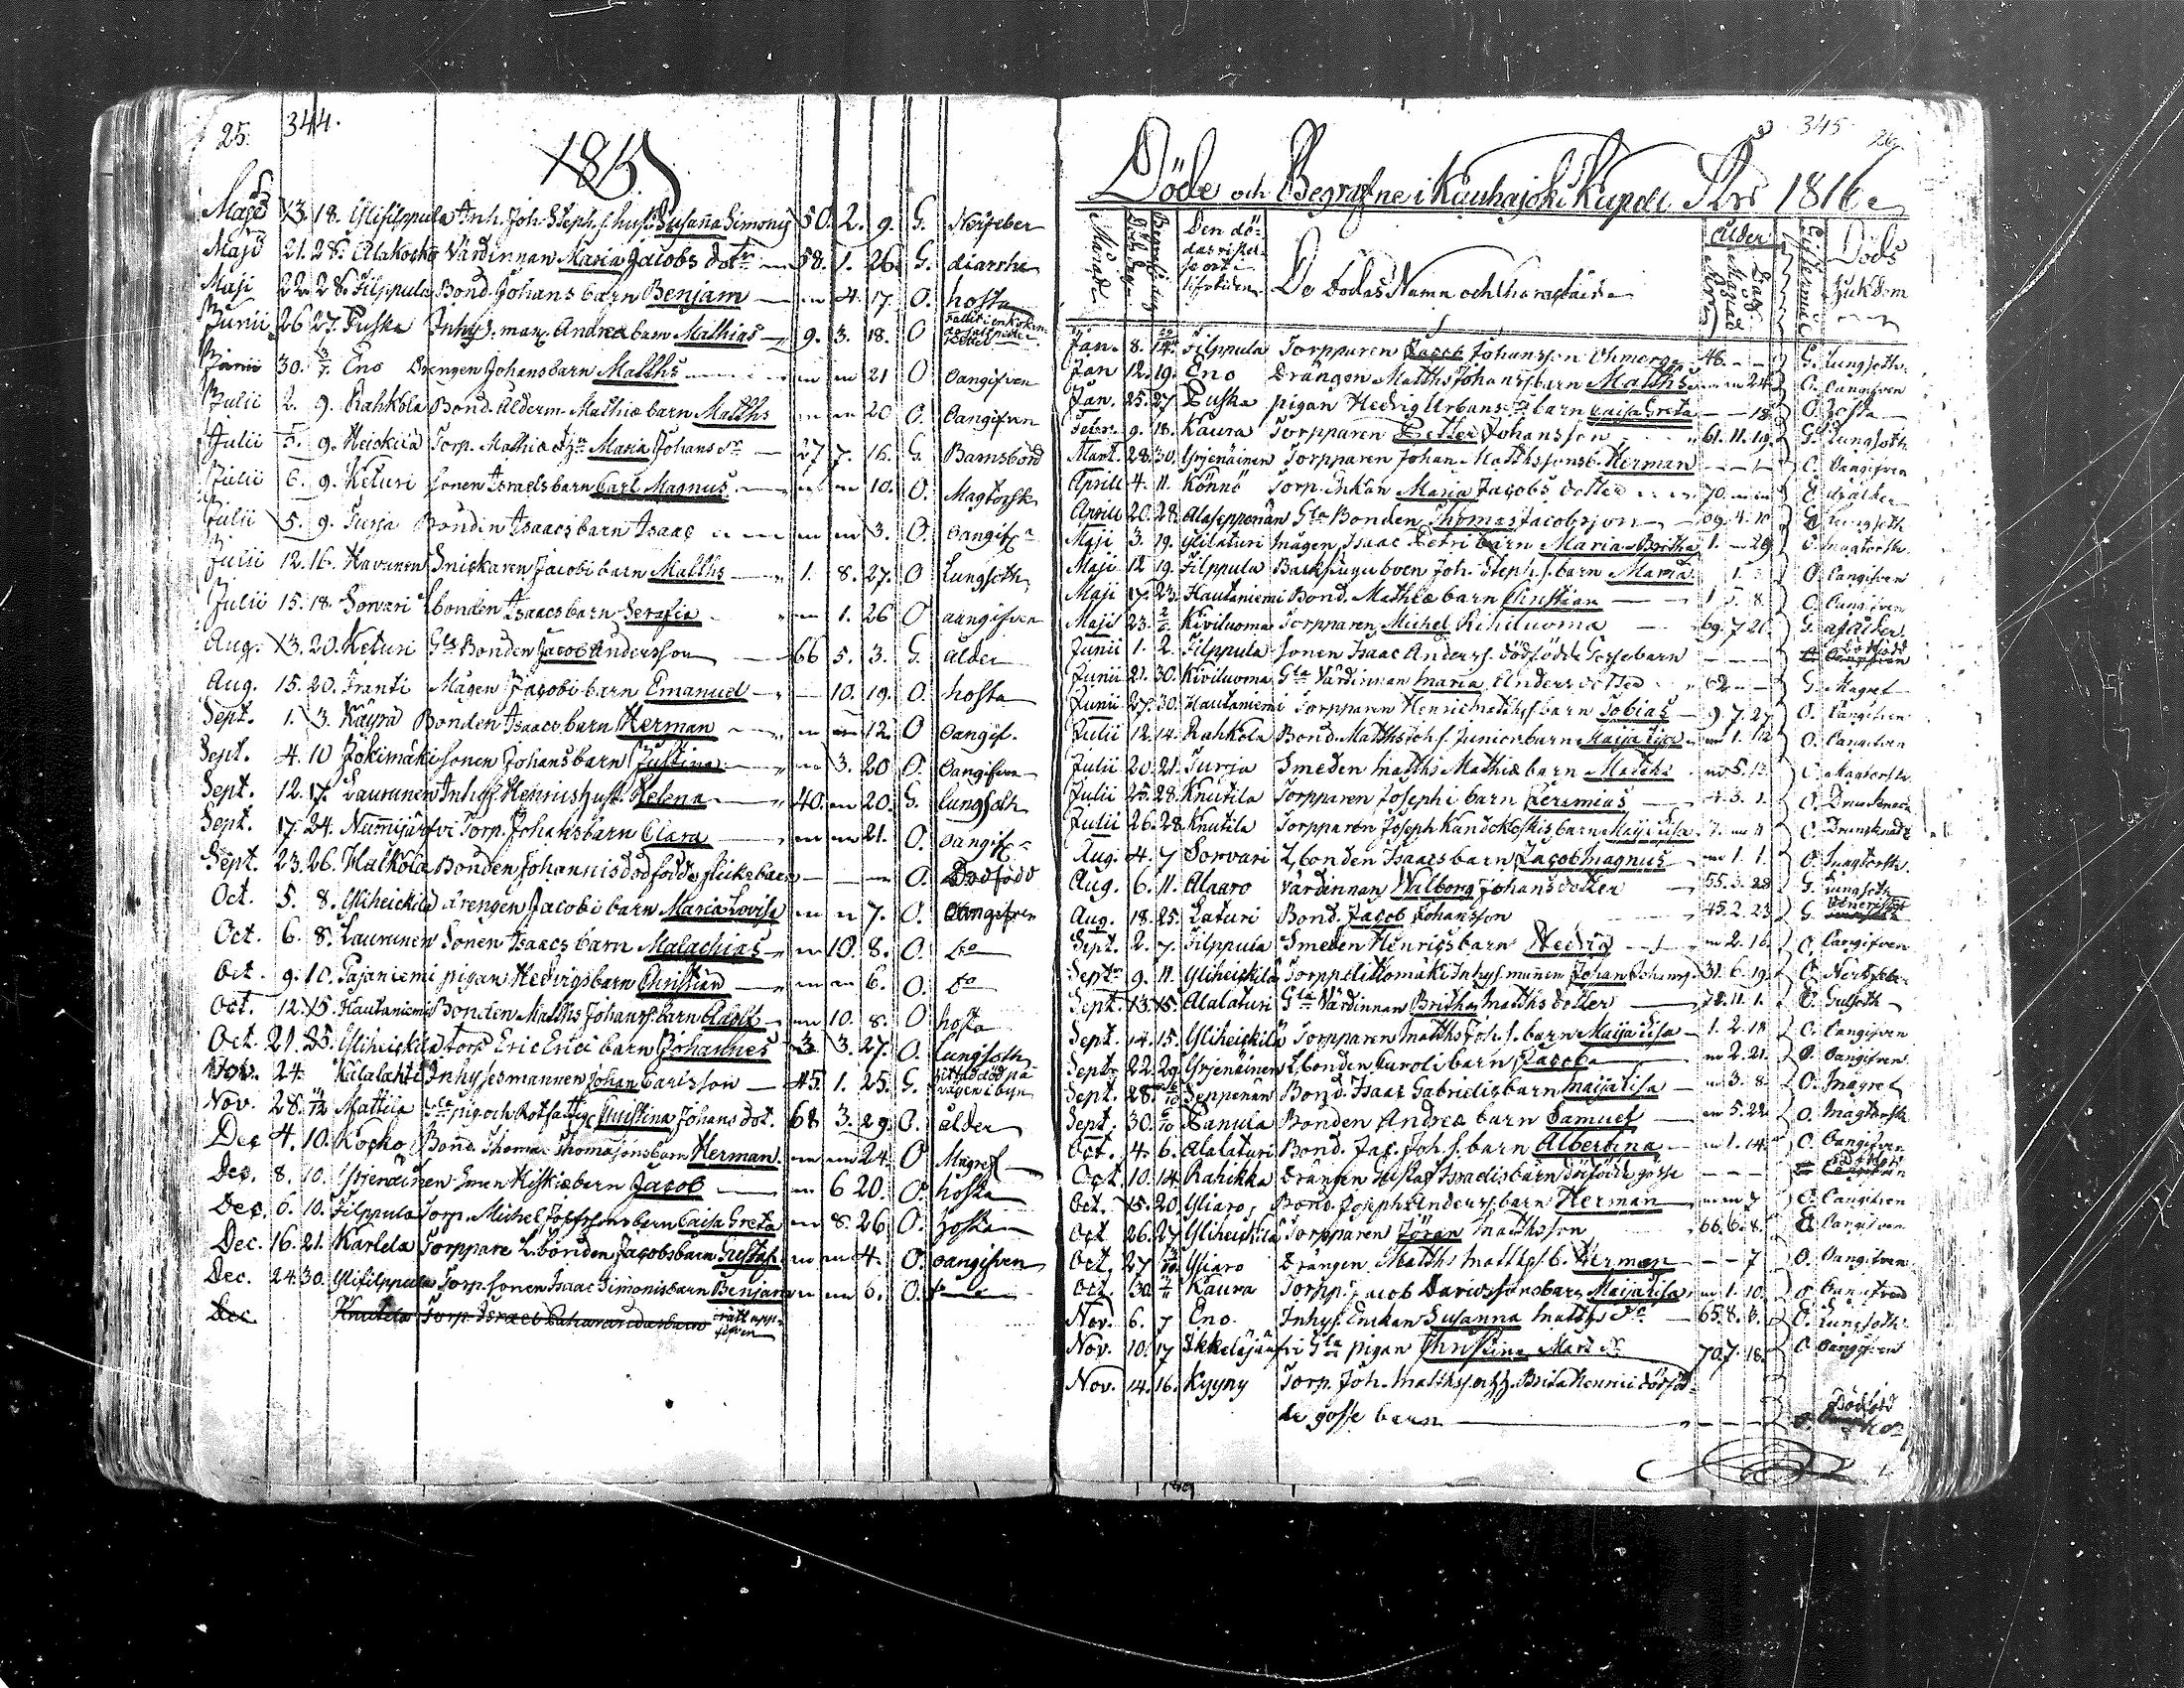 25. 344.
1815.
Maji 13. 18. Ylifilppula Inh. Joh. Steph. s. hust. Susana Simonis 50. 2. 9. G. Nerffeber
Maji 21. 28. Alakoski Värdinnan Maria Jacobs dotr 58. 1. 26. G. diarrhe
Maji 22. 28. Filppula Bond. Johans barn Benjam 4. 17. O. hosta
Junii 26 27. Puska Inhys. man. Andreæ barn Mathias 9. 3. 18. O
Junii 30. Eno Drengen Johans barn Matths 21 O Oangifven
Julii 2. 9. Rahkola Bond. Alderm. Mathiæ barn Matths 20 O. Oangifven
Julii 5. 9. Heickilä Torp. Mathiæ Maria Johans dr 27 7. 16. G. Barnsbörd
Julii 6. 9. Keturi sonen Israels barn Carl Magnus 10. O. Magtorsk
Julii 5. 9. Turja Bonden Isaacs barn Isaac 3. O. oangif
Julii 12. 16. Havunen Snickaren Jacobi barn Matths 1. 8. 27. O Lungsoth
Julii 15. 18. Sorvari Lbonden Isaacs barn Serafia 1. 26 O aangifven
Aug. 13. 20. Keturi Gla Bonden Jacob Andersson 66 5. 3. G. ålder
Aug. 15. 20. Frantti Mågen Jacobi barn Emanuel 10. 19. O. hosta
Sept. 1. 3. Käyrä Bonden Isaacs barn Herman 12. O oangif.
Sept. 4. 10 Jokimäki sonen Johans barn Justina 3. 20 O. Oangifven
Sept. 12. 17. Laurunen Inhys Henrics hust. Helena 40. 20. G. lungsoth
Sept. 17. 24. Nummijärfvi Torp. Johans barn Clara 21. O. oangif
Sept. 23. 26. Halkola Bonden Johannis dödfödde flickebarn O. Dödfödd
Oct. 5. 8. Yliheickilä drengen Jacobi barn Maria Lovisa 7. O. Oangifven
Oct. 6. 8. Laurunen Sonen Isaacs barn Malachias 10. 8. O. Do
Oct. 9. 10. Pajaniemi pigan Hedvigs barn Christian 6. O. Do
Oct. 12. 15. Hautaniemi Bonden Matths Johans s. barn Adolf 10. 8. O hosta
Oct. 21. 25. Yliheickilä torp Eric Erici barn Johannes 3. 3. 27. O. lungsoth
Nov. 24. Kalalahti Inhysesmannen Johan Carlsson 45 1. 25. G. hittad död på vägen i byn
Nov. 28. Mattila Gla pig. och Rotfattig Christina Johans dot. 68 3. 29. O. ålder
Dec 4. 10. Kocko Bond. Thomas Thomassons barn Herman 24. O Magref
Dec. 8. 10. Yrjenäinen sonen Hiskiæ barn Jacob 6 20. O. hosta
Dec. 6. 10. Filppula Torp. Michel Josephsons barn Caisa Greta 8. 26 O. hosta
Dec. 16. 21. Karlela Torppare L. bonden Jacobs barn Gustaf 4. O. oangifven
Dec. 24 30. Ylifilppula Torp. sonen Isaac Simonis barn Benjam 6. O. Do
Dec Knutila Torp. Israel barn
345 26.
Döde och Begrafne i Kauhajoki Kapell Åhr 1816.
Månad Begrafn. dag Den dödas vistelse ort De dödas Namn och Charactaire Ålder Döds sjukdom
Jan. 8. 14. Filppula Torpparen Jacob Johansson 48. G. Lungsoth
Jan 12. 19. Eno Drängen Matths Johanss barn Matths 24. O. Oangifven
Jan. 25. 27 Puska pigan Hedvig Urbans dr barn Caisa Greta 18. O. hosta
Febr. 9. 18. Kaura Torpparen Petter Johansson 61. 11. 19. G. Lungsoth
Mart. 28. 30. Yrjenäinen Torpparen Johan Matthssons b. Herman O. Oangifven
Aprill 4. 11. Könnö Torp. Enkan Maria Jacobs dotter 70. ålder
Aprill 20. 28. Alasepponen Gla Bonden Thomas Jacobsson 69. 4. 10 Lungsoth
Maji 3. 19. Ylilaturi Mågen Isaac Petri barn Maria Britha 1. 29. O. Magtorsk
Maji 12 19. Filppula Backstugubven Joh. Steph. s. barn Maria 1. O. Oangifven
Maji 17. 23. Hautaniemi Bond. Mathiæ barn Christian 1 5. 8. O. Oangifven
Maji 23. Kiviluoma Torpparen Michel Kiviluoma 69. 7 21. G. af ålder
Junii 1. 2. Filppula sonen Isaac Anderss. dödfödde Gossebarn Dödfödd
Junii 21. 30. Kiviluoma Gla Värdinnan Maria Anders dotter 62 G. Magref
Junii 27. 30. Hautaniemi Torpparen Henric Matths s. barn Tobias 9. 7. 27. O. Oangifven
Julii 12. 14. Rahkola Bond. Matths Joh. s. Junior barn Maija Lisa 1. 12 O. Oangifven
Julii 20. 21. Turja Smeden Matths Mathiæ barn Matths 5. 13. O. Magtorsk
Julii 25. 28. Knutila Torpparen Josephi barn Jeremias 4. 3. 1. O. Drunknad
Julii 26. 28. Knutila Torpparen Joseph Kandokoskis barn Maija Lisa 7. O. Drunknade
Aug. 4. 7 Sorvari Lbonden Isaacs barn Jacob Magnus 1. 1. O. Magtorsk.
Aug. 6. 11. Alaaro Värdinnan Walborg Johans dotter 55. 3. 28 G. Lungsoth
Aug. 18. 25. Laturi Bond. Jacob Johansson 45. 2. 23 G. Venerisk
Sept. 2. 7. Filppula Smeden Henrics barn Hedvig 2. 16. O. Oangifven
Sept. 9. 11. Yliheickilä Torpp. Inhys. mannen Johan Johanss. 31. 6. 19. O. Nerffeber
Sept. 13. 15. Alalaturi Gla Värdinnan Britha Matths dotter 78. 11. 1. Gulsoth
Sept. 14. 15. Yliheickilä Torpparen Matths Joh. s. barn Maija Lisa 1. 2. 18 O. Oangifven
Sept. 22. 29. Yrjenäinen Lbonden Caroli barn Jacob 2. 21. O. Oangifven
Sept. 28. Sepponen Bond. Isaac Gabrielis barn Maija Lisa 3. 8. O. Magref
Sept. 30. Panula Bonden Andreæ barn Samuel 5. 22. O. Magtorsk
Oct. 4. 6. Alalaturi Bond. Jac. Joh. s. barn Albertina 1. 14. O. Oangifven
Oct. 10. 14. Rahikka Drängen Gustaf Israelis barn dödfödde gosse Dödfödd
Oct. 15. 20. Yliaro, Bond. Joseph Anderss. barn Herman 7 O. Oangifven
Oct. 26. 27. Yliheickilä Torpparen Jöran Matthsson 66. 6. 8. Oangifven
Oct. 27 Yliaro Drängen Matths Matths s. b. Herman 7 O. Oangifven
Oct. 30. Kaura Torpp. Jacob Davidssons barn Maija Lisa 1. 10. O Oangifven
Nov. 6. 7 Eno. Inhys. Enckan Susanna Matths dr 65. 8. 8. Lungsoth
Nov. 10. 17 Ikkeläjärfvi Gla pigan Christina Mart dr 70. 7. 18. O Oangifven
Nov. 14. 16. Kyyny Torp. Joh. Matthss. Brita Henrici dödföd-
de gosse barn Dödfödd